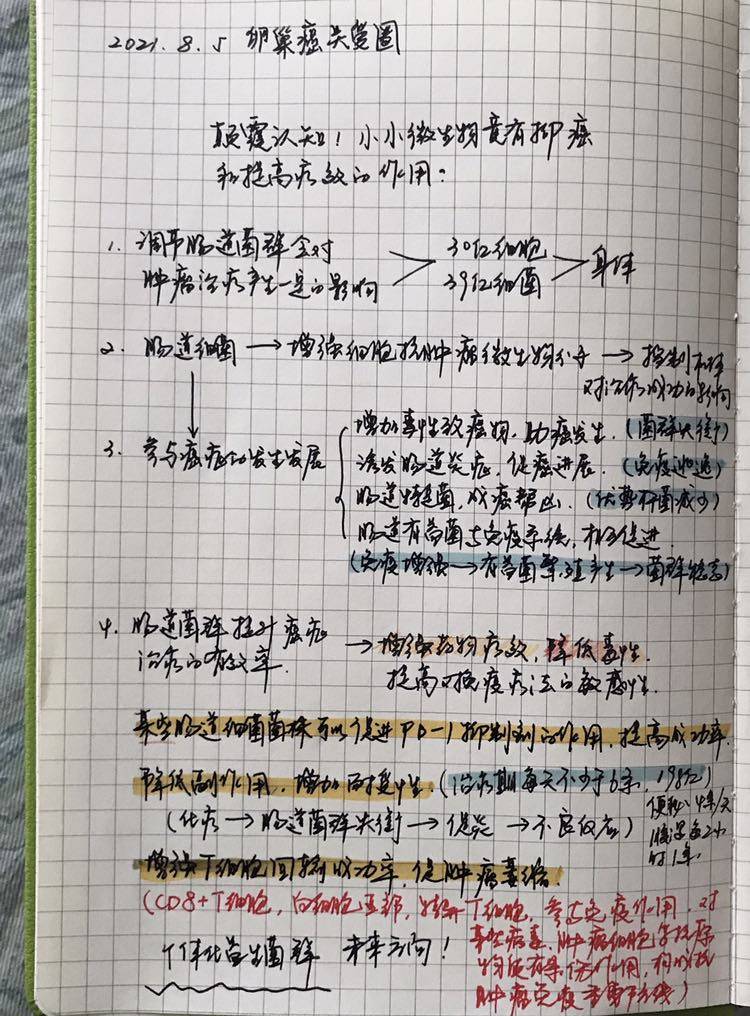 2021.8.5 卵巢癌关爱圈
颠覆认知！小小微生物竟有抑癌
和提高疗效的作用：
1. 调节肠道菌群会对
肿瘤治疗产生一定的影响
30亿细胞
39亿细菌
身体
2. 肠道细菌 → 增强细胞抗肿瘤微生物分子 → 控制机体
对治疗成功的影响
3. 参与癌症的发生发展
增加毒性致癌物，助癌发生．(菌群失衡)
诱发肠道炎症，促癌进展．(免疫逃逸)
肠道特定菌，成癌帮凶．(优势杆菌减少)
肠道有益菌与免疫系统，相互促进
(免疫增强 → 有益菌繁殖产生 → 菌群稳态)
4. 肠道菌群提升癌症
治疗的有效率
→ 增强药物疗效，降低毒性．
提高口换疫疗法的敏感性．
某些肠道细菌菌株可以促进PD-1抑制剂的作用，提高成功率．
降低副作用，增加耐受性．(治疗期每天不少于6条，198亿)
便秘 4条/天
腹泻每2小
时1条．
(化疗 → 肠道菌群失衡 → 促炎 → 不良反应)
增强T细胞回输成功率，促肿瘤萎缩．
(CD8+T细胞，白细胞亚部，T细胞，参与免疫作用，对
某些病毒、肿瘤细胞等抗原
物质有杀伤作用，构成抗
肿瘤免疫重要防线)
个体化益生菌群 未来方向！